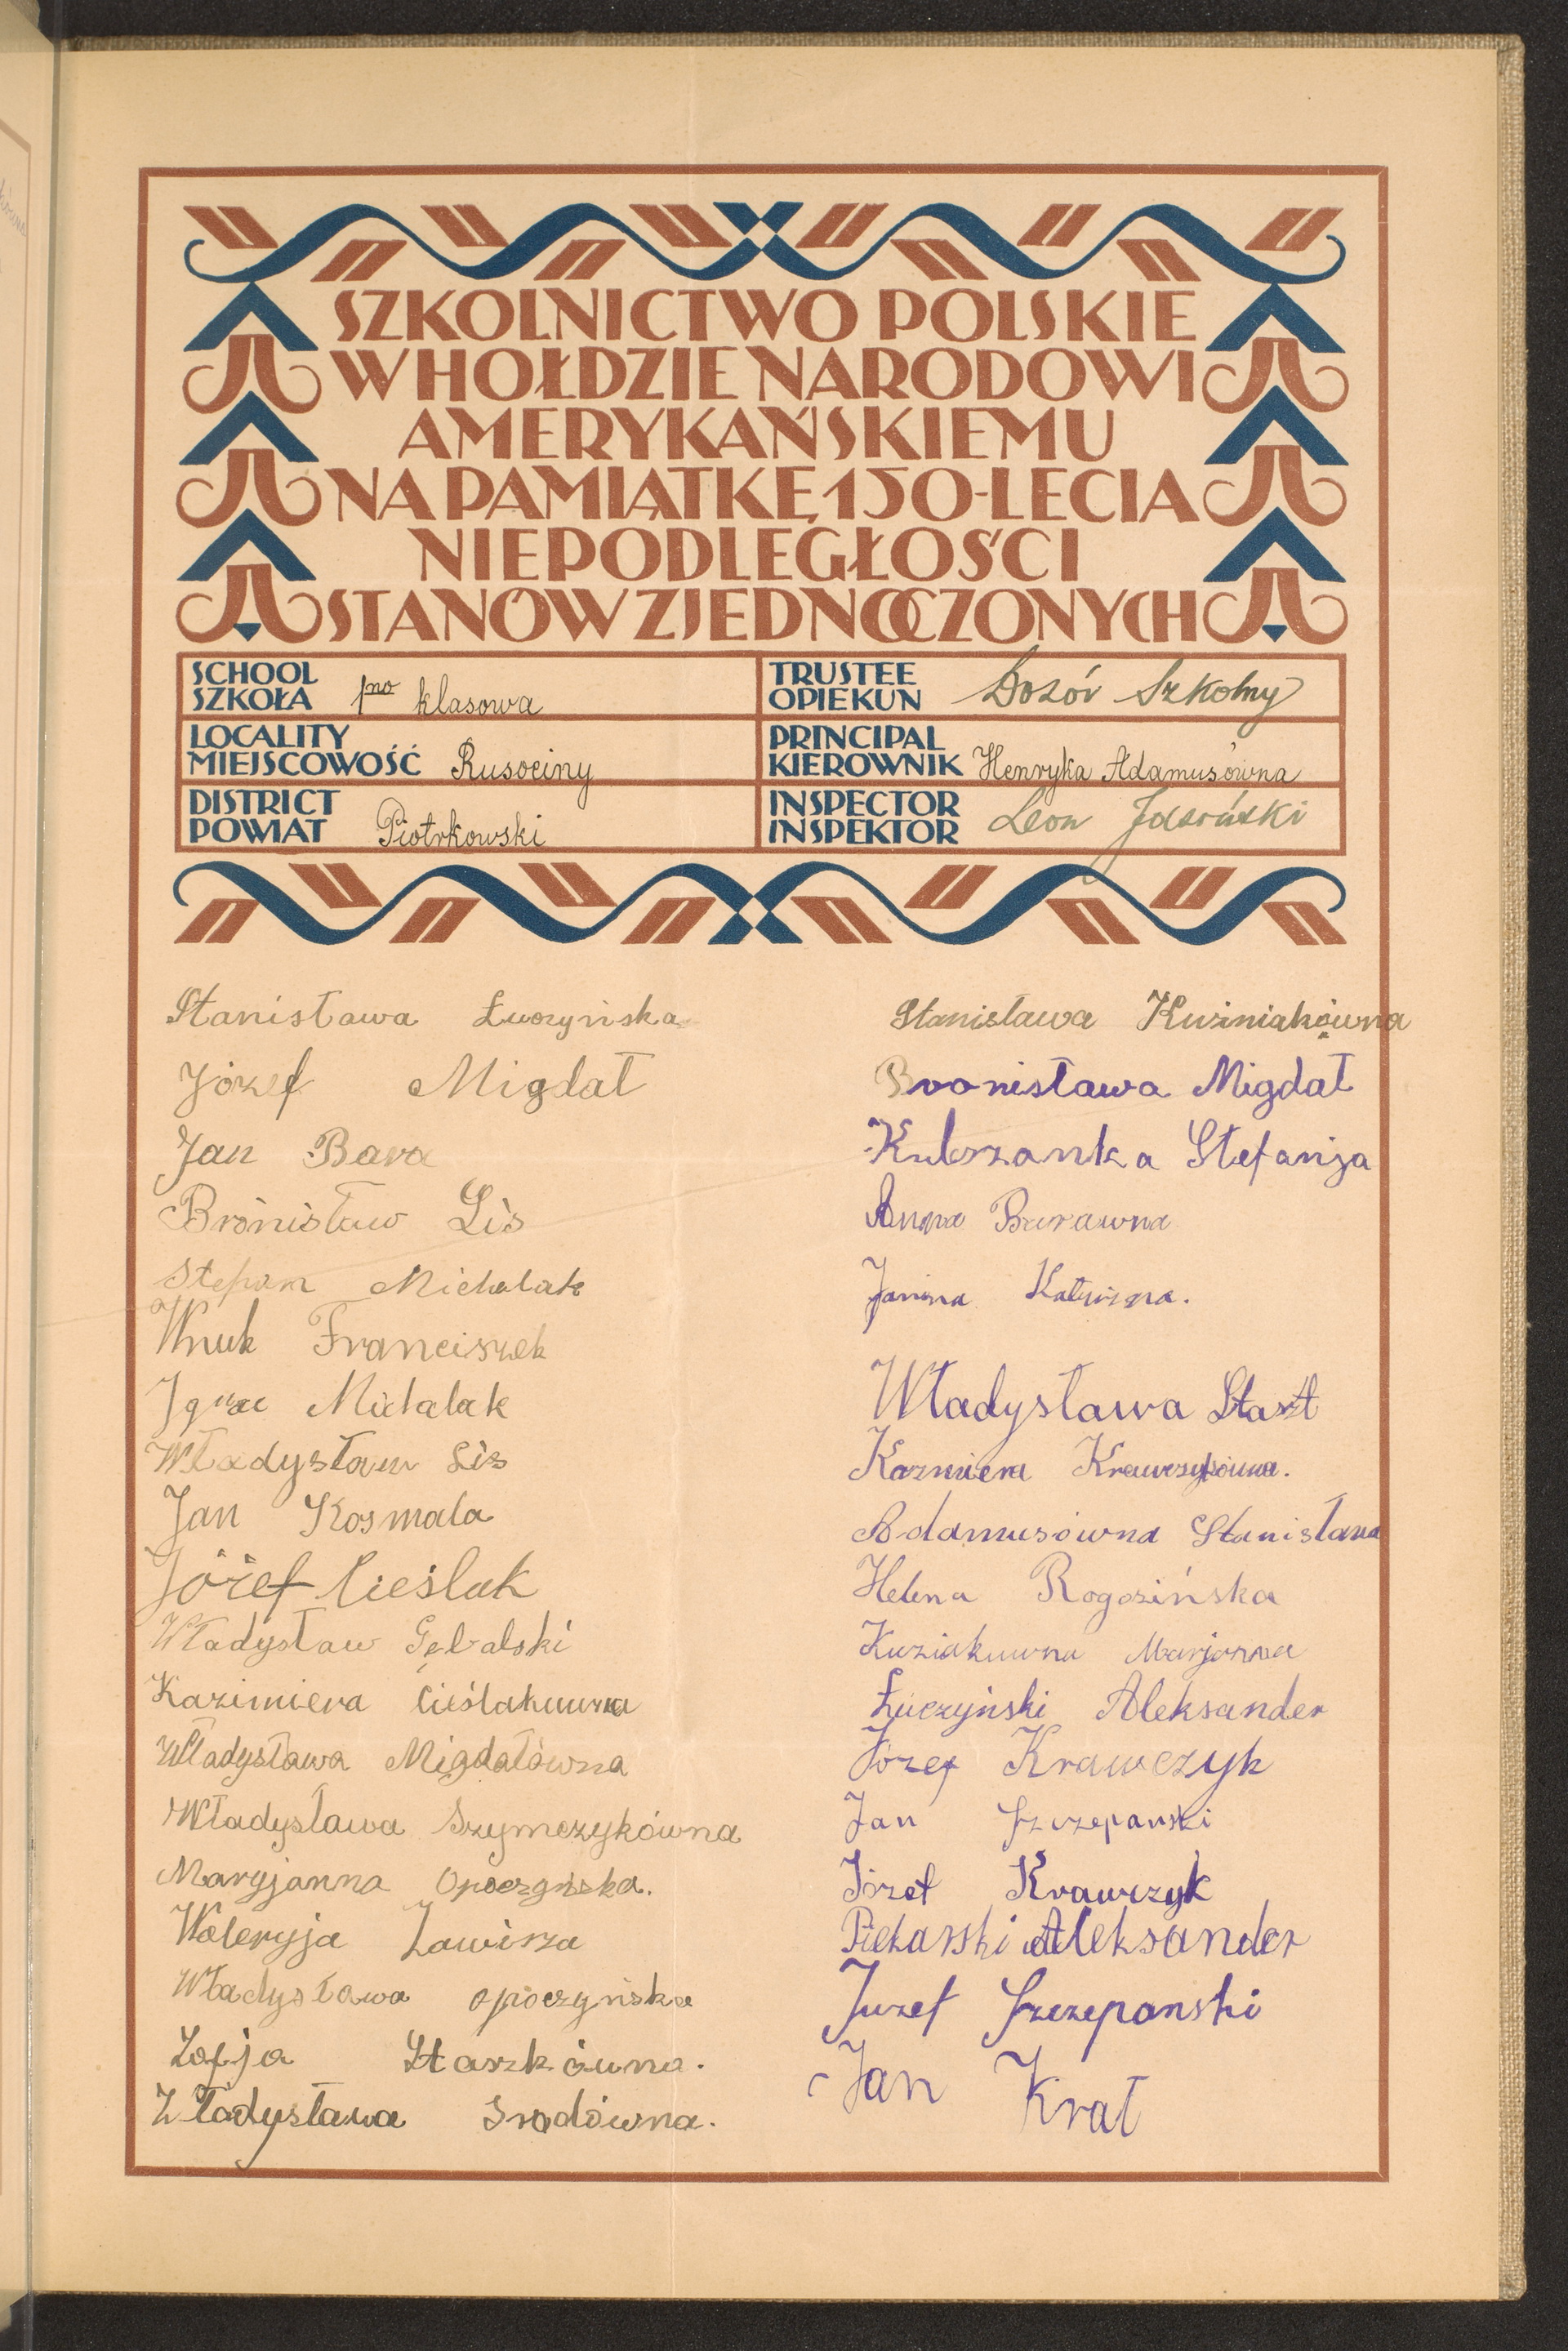 SZKOLNICTWO POLSKIE
W HOŁDZIE NARODOWI
AMERYKAŃSKIEMU
NA PAMIĄTKĘ 150-LECIA
NIEPODLEGŁOŚCI
STANÓW ZJEDNOCZONYCH
SCHOOL
SZKOŁA 1no klasowa
TRUSTEE
OPIEKUN Dozór Szkolny
LOCALITY
MIEJSCOWOŚĆ Rusociny
PRINCIPAL
KIEROWNIK Henryka Adamusówna
DISTRICT
POWIAT Piotrkowski
INSPECTOR
INSPEKTOR Leon
Stanisława Łuczyńska
Józef Migdał
Jan Bara
Bronisław Lis
Stefan Michalak
Wnuk Franciszek
Ignac Michalak
Władysław Lis
Jan Kosmala
Józef Cieślak
Władysław Gębalski
Kazimiera Cieślakuwna
Władysława Migdałówna
Władysława Szymczykówna
Maryjanna Opoczyńska.
Waleryja Zawisza
Władysława Opoczyńska
Zofja Staszkówna.
Władysława Srodówna.
Stanisława Kuźniakówna
Bronisława Migdał
Stefanja
Anna Barawna
Janina
Władysława
Kazmiera Krawczykówna.
Adamusówna Stanisława
Helena Rogozińska
Kuziakuwna Marjanna
Łuczyński Aleksander
Józef Krawczyk
Jan Szczepański
Józef Krawczyk
Piekarski Aleksander
Juzef Szczepanski
Jan Krał